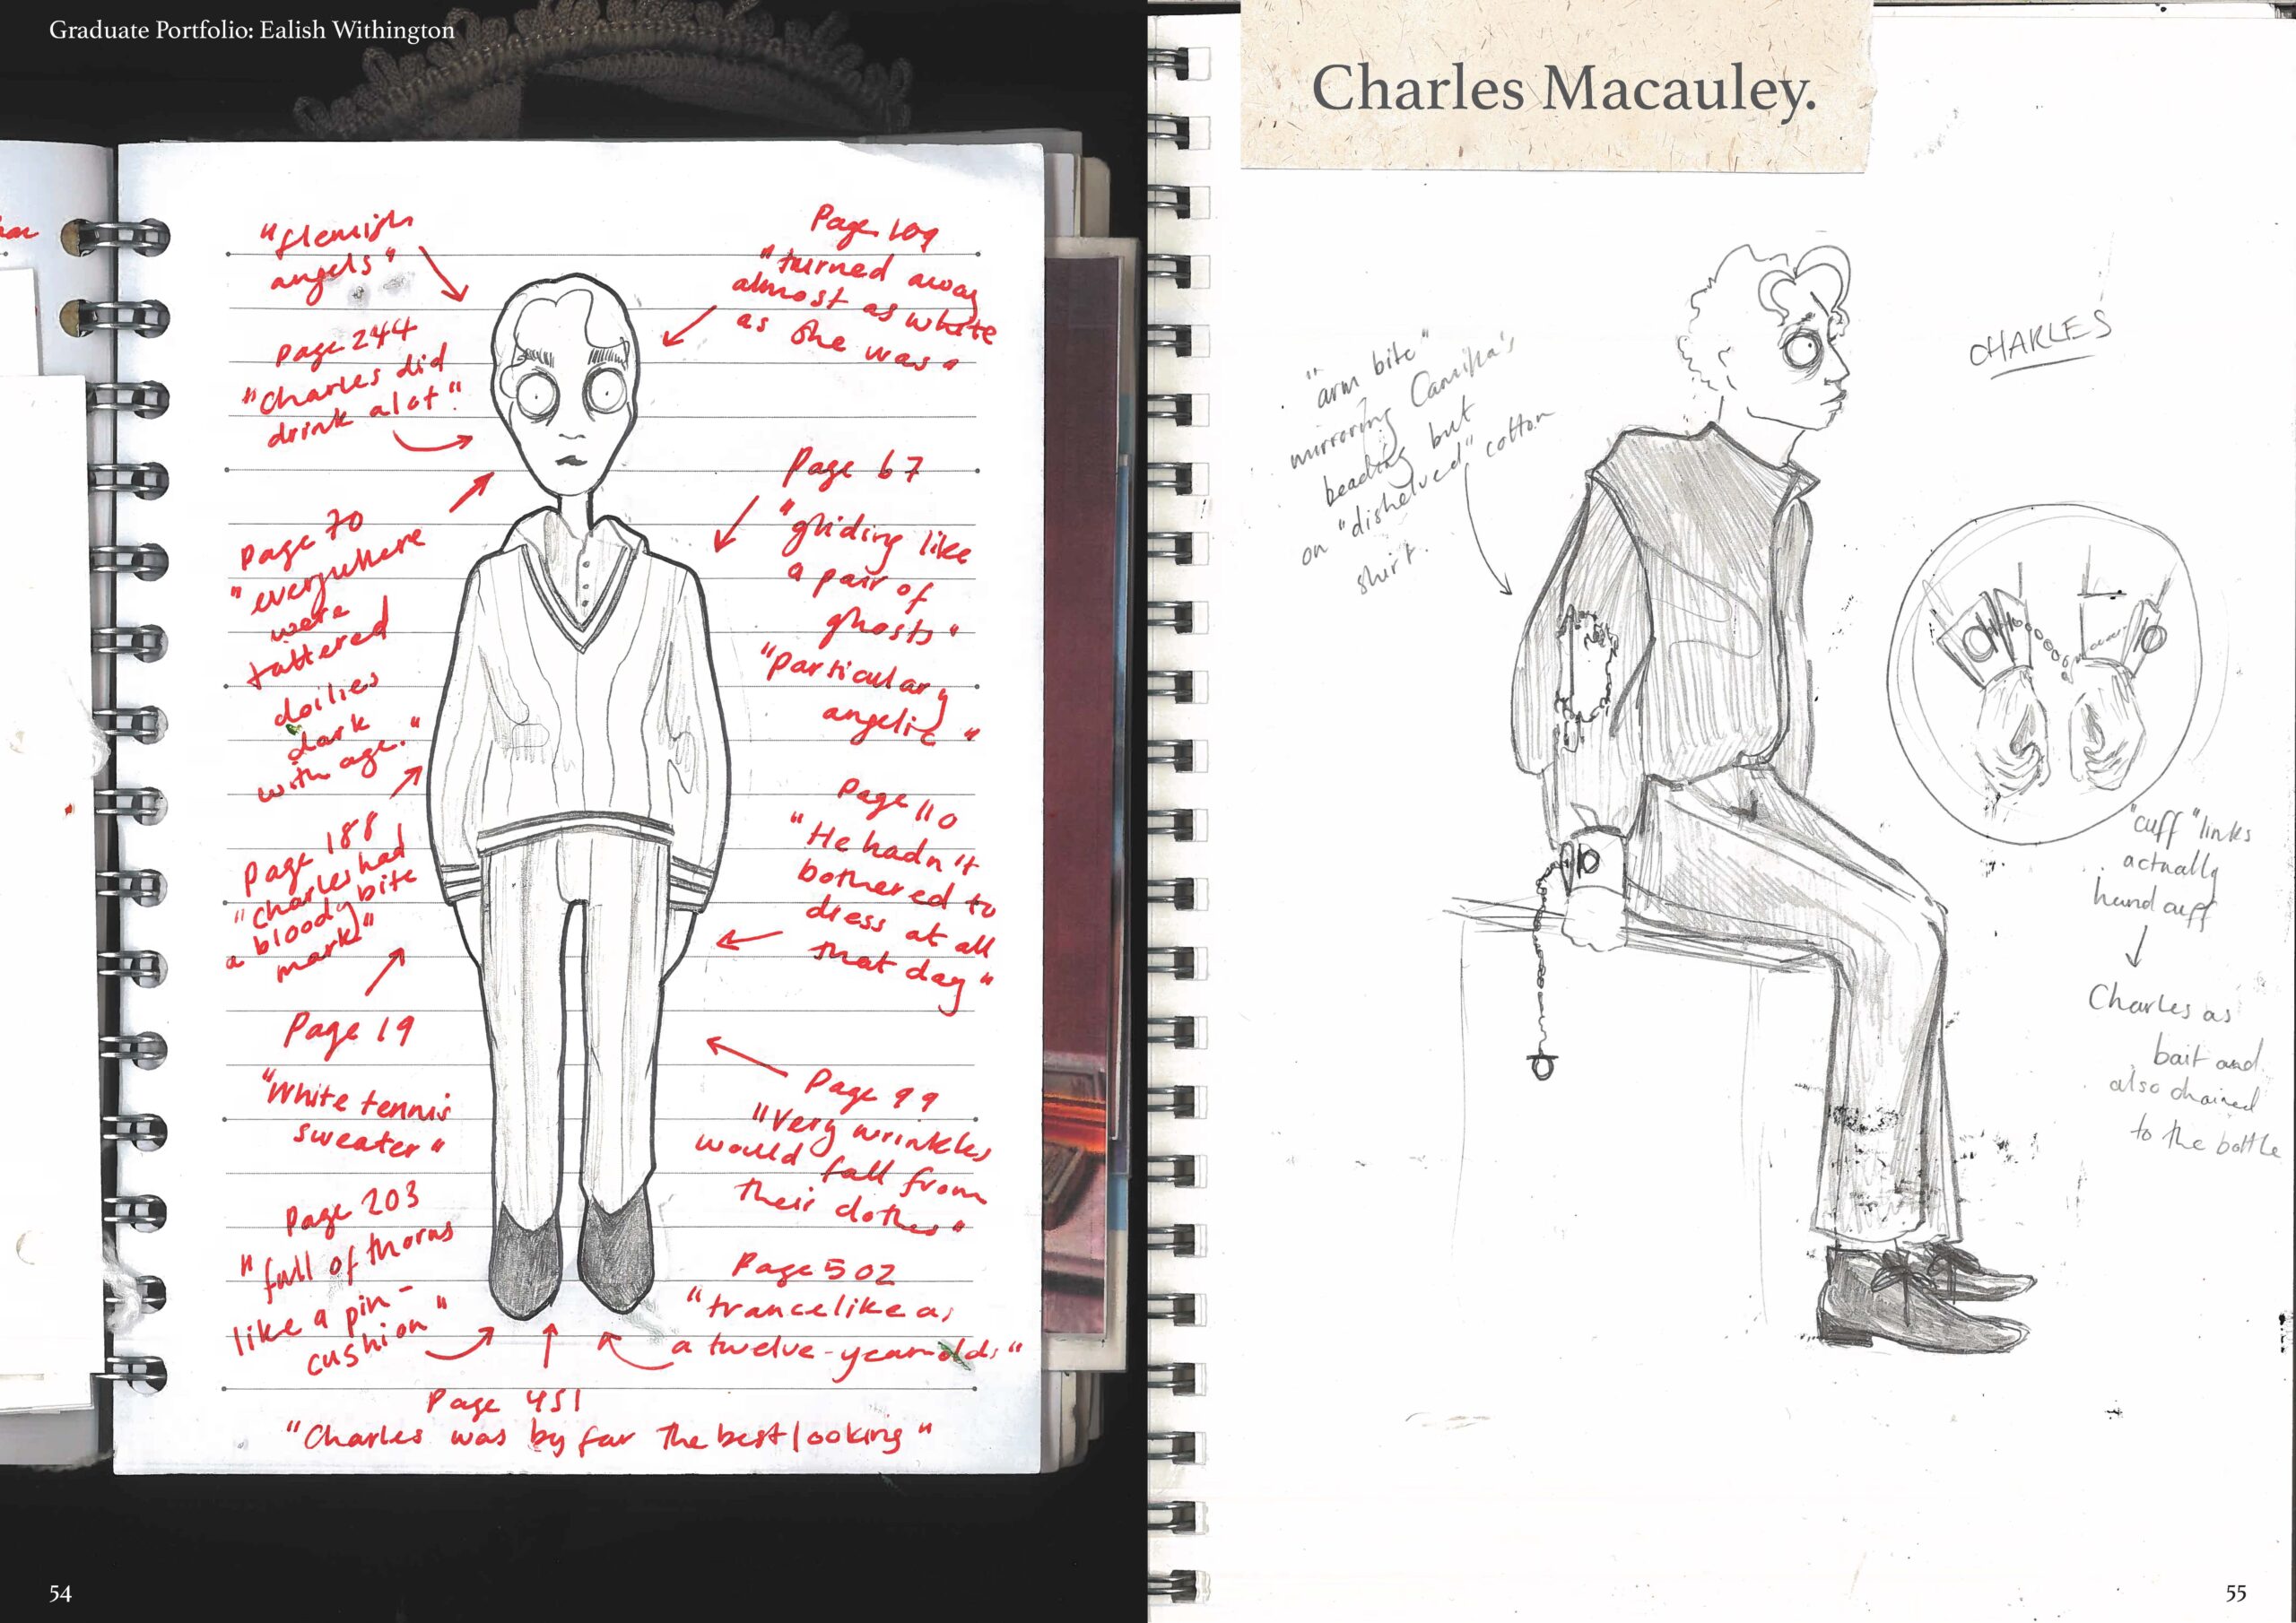 Graduate Portfolio: Ealish Withington
"flemish
angels"
Page 244
"Charles did
drink alot".
Page 70
"everywhere
were
tattered
doilies
dark
with age."
Page 188
"Charles had
a bloody bite
mark."
Page 19
"White tennis
sweater"
Page 203
"full of thorns
like a pin-
cushion"
Page 109
"turned away
almost as white
as she was"
Page 67
"gliding like
a pair of
ghosts"
"particulary
angelic"
Page 110
"He hadn't
bothered to
dress at all
that day"
Page 99
"Very wrinkles
would fall from
their clothes"
Page 502
"trancelike as
a twelve-year-olds"
Page 451
"Charles was by far the best looking"
54
Charles Macauley.
CHARLES
"arm bite"
mirroring Camilla's
beading but
on "dishelved" cotton
shirt.
"cuff" links
actually
hand cuff
Charles as
bait and
also chained
to the bottle
55